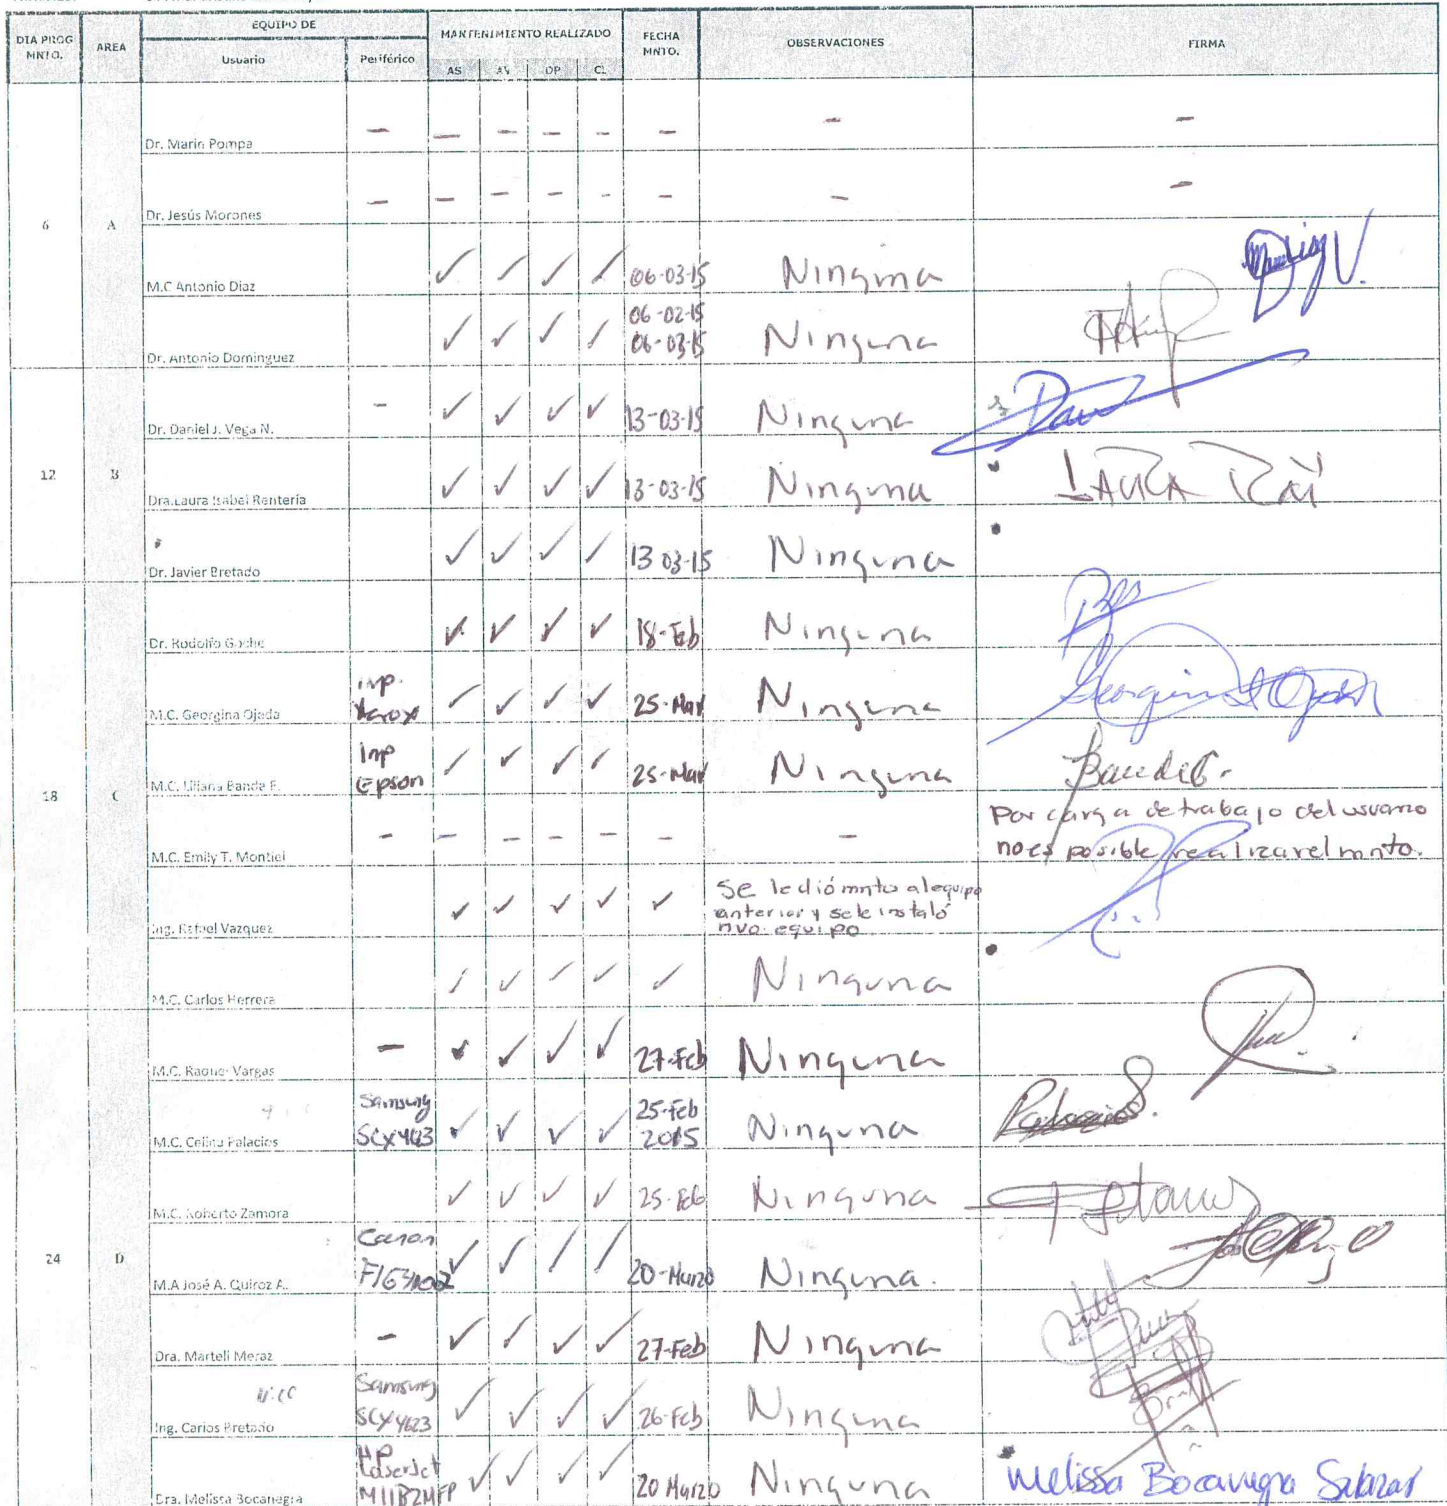 DIA PROG MNTO. AREA EQUIPO DE MANTENIMIENTO REALIZADO FECHA MNTO. OBSERVACIONES FIRMA
Usuario Periférico AS AV DP CL
6 A
Dr. Marin Pompa — — — — — — — —
Dr. Jesús Morones — — — — — — — —
M.C Antonio Diaz ✓ ✓ ✓ ✓ 06-03-15 Ninguna
Dr. Antonio Dominguez ✓ ✓ ✓ ✓ 06-02-15 06-03-15 Ninguna
12 B
Dr. Daniel J. Vega N. — ✓ ✓ ✓ ✓ 13-03-15 Ninguna
Dra.Laura Isabel Rentería ✓ ✓ ✓ ✓ 13-03-15 Ninguna
Dr. Javier Bretado ✓ ✓ ✓ ✓ 13 03-15 Ninguna
18 C
Dr. Rodolfo Goche ✓ ✓ ✓ ✓ 18-Feb Ninguna
M.C. Georgina Ojeda Imp. Xerox ✓ ✓ ✓ ✓ 25-Mar Ninguna
M.C. Liliana Bande E. Imp Epson ✓ ✓ ✓ ✓ 25-Mar Ninguna
M.C. Emily T. Montiel — — — — — — — Por carga de trabajo del usuario
no es posible realizar el mnto.
Ing. Rafael Vazquez ✓ ✓ ✓ ✓ ✓ Se le dió mnto al equipo
anterior y se le instaló
nvo. equipo
M.C. Carlos Herrera ✓ ✓ ✓ ✓ ✓ Ninguna
24 D
M.C. Raquel Vargas — ✓ ✓ ✓ ✓ 27-Feb Ninguna
M.C. Celina Palacios Samsung SCX4623 ✓ ✓ ✓ ✓ 25-Feb 2015 Ninguna Palacios
M.C. Roberto Zamora ✓ ✓ ✓ ✓ 25-Feb Ninguna
M.A José A. Quiroz A. Canon ✓ ✓ ✓ ✓ 20-Marzo Ninguna.
Dra. Marteli Meraz — ✓ ✓ ✓ ✓ 27-Feb Ninguna
Ing. Carlos Bretado Samsung SCX4623 ✓ ✓ ✓ ✓ 26-Feb Ninguna
Dra. Melissa Bocanegra HP LaserJet ✓ ✓ ✓ ✓ 20 Marzo Ninguna Melissa Bocanegra Salazar